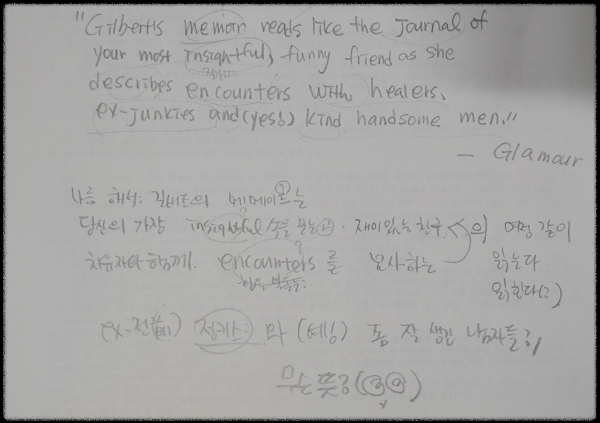 "Gilbert's memoir reads like the Journal of
your most insightful, funny friend as she
describes encounters with healers,
ex-junkies and (yes!) kind handsome men."
— Glamour
나름 해석: 길버트의
당신의 가장 insightful 재미있는 친구 의 여정 같이
치유자와 함께 encounters 를 묘사하는 읽는다.
읽힌다(?)
ex- 정키스 와 (예스) 잘 생긴 남자들
무슨 뜻?